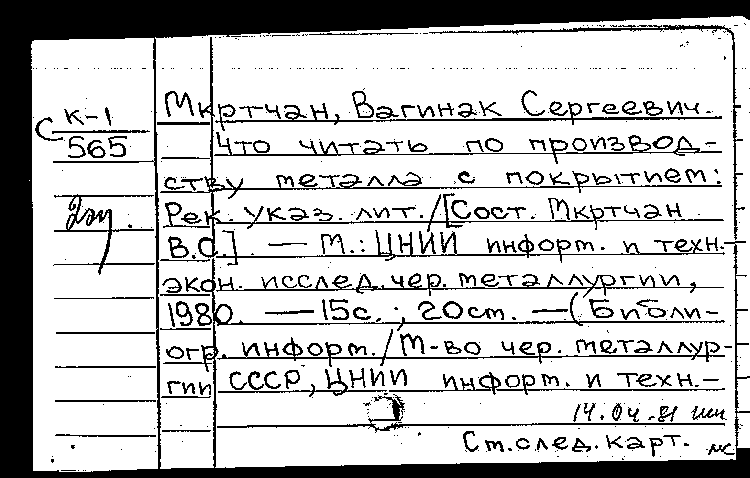 Мкртчан, Вагинак Сергеевич.
С К-1
565
Что читать по производ-
ству металла с покрытием:
Рек. указ. лит./[Сост. Мкртчан
В.С.]. — М.: ЦНИИ информ. и техн.-
экон. исслед. чер. металлургии,
1980. — 15с.; 20см. — (Библи-
огр. информ./М-во чер. металлур-
гии СССР, ЦНИИ информ. и техн.-
14.04.81
См. след. карт.